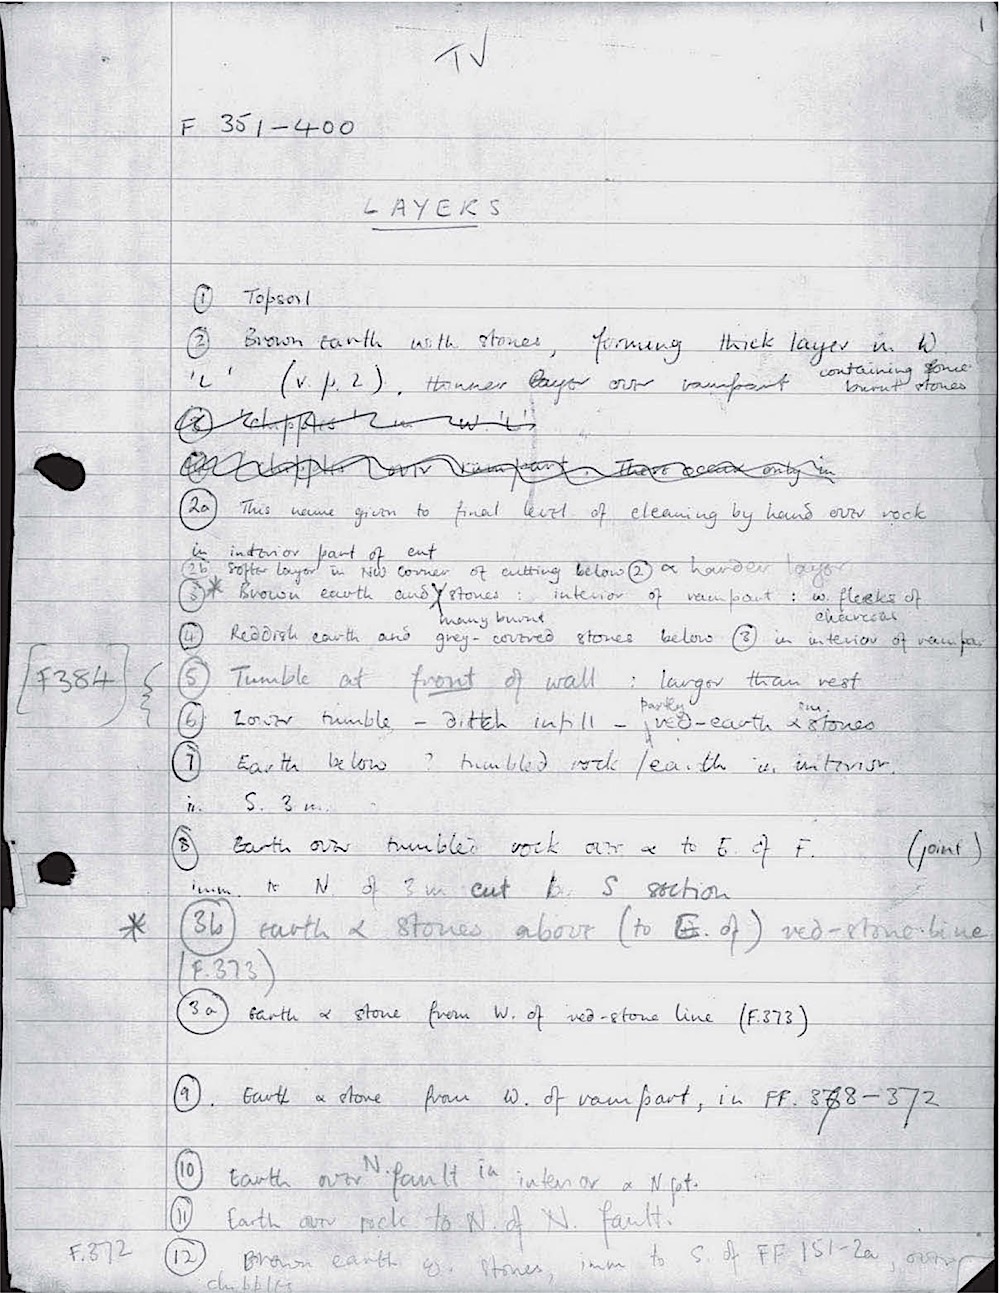 1
TV
F 351-400
LAYERS
① Topsoil
② Brown earth with stones, forming thick layer in W
'L' (v. p. 2), thinner layer over rampart containing some burnt stones
'chipples' in W. 'L'.
chipples over rampart. These occur only in
2a This name given to final level of cleaning by hand over rock
in interior part of cut
2b Softer layer in NW corner of cutting below ② & harder layer
③* Brown earth and stones : interior of rampart : w. flecks of charcoal
④ Reddish earth and many burnt grey-covered stones below ③ in interior of rampa
[F384] ⑤ Tumble at front of wall : larger than rest
⑥ Lower tumble - ditch infill - partly red-earth & sm. stones
⑦ Earth below ? tumbled rock/earth in interior.
in S. 3 m.
⑧ Earth over tumbled rock over & to E. of F. (joint)
imm. to N. of 3 m cut S section
* 3b earth & stones above (to E. of) red-stone-line
(F.373)
3a Earth & stone from W. of red-stone line (F.373)
⑨. Earth & stone from W. of rampart, in FF. 368-372
⑩ Earth over N. fault in interior & N pt.
⑪ Earth over rock to N. of N. fault.
F.372 ⑫ Brown earth w. stones, imm to S. of FF 151-2a, over